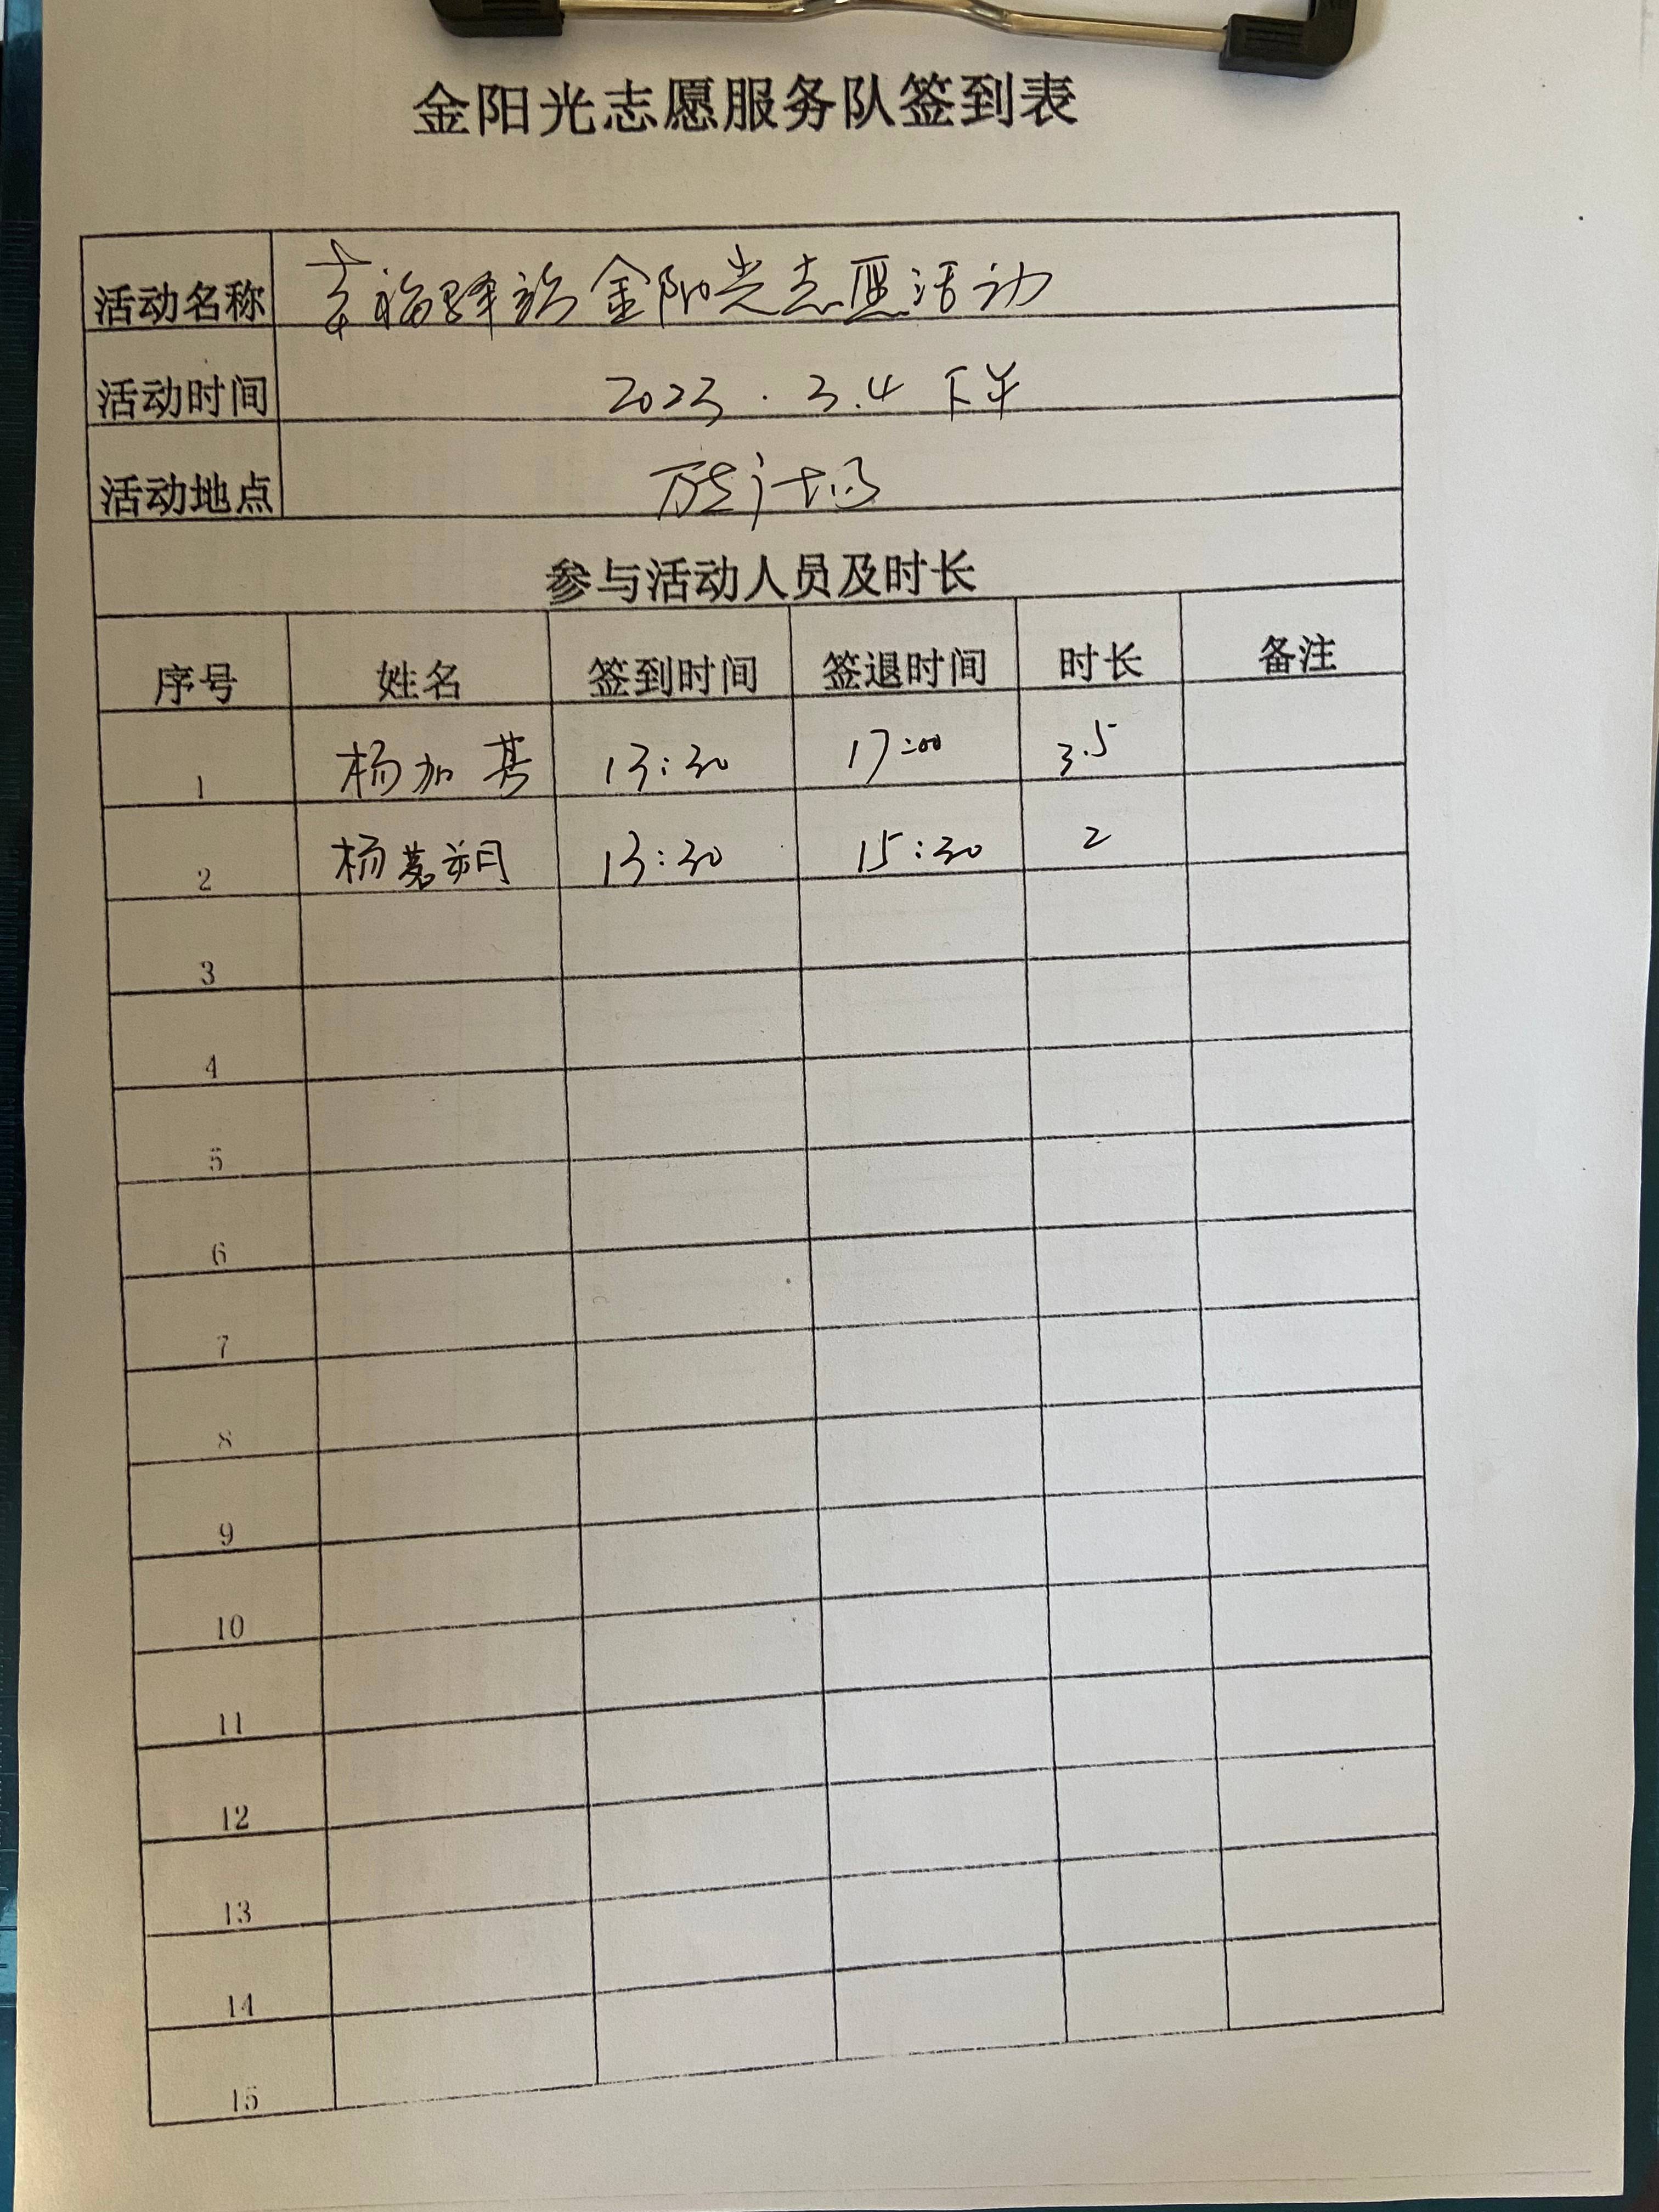 金阳光志愿服务队签到表
活动名称 幸福驿站金阳光志愿活动
活动时间 2023.3.4 下午
活动地点
参与活动人员及时长
序号 姓名 签到时间 签退时间 时长 备注
1 杨加 13:30 17:00 3.5
2 杨 朔 13:30 15:30 2
3
4
5
6
7
8
9
10
11
12
13
14
15